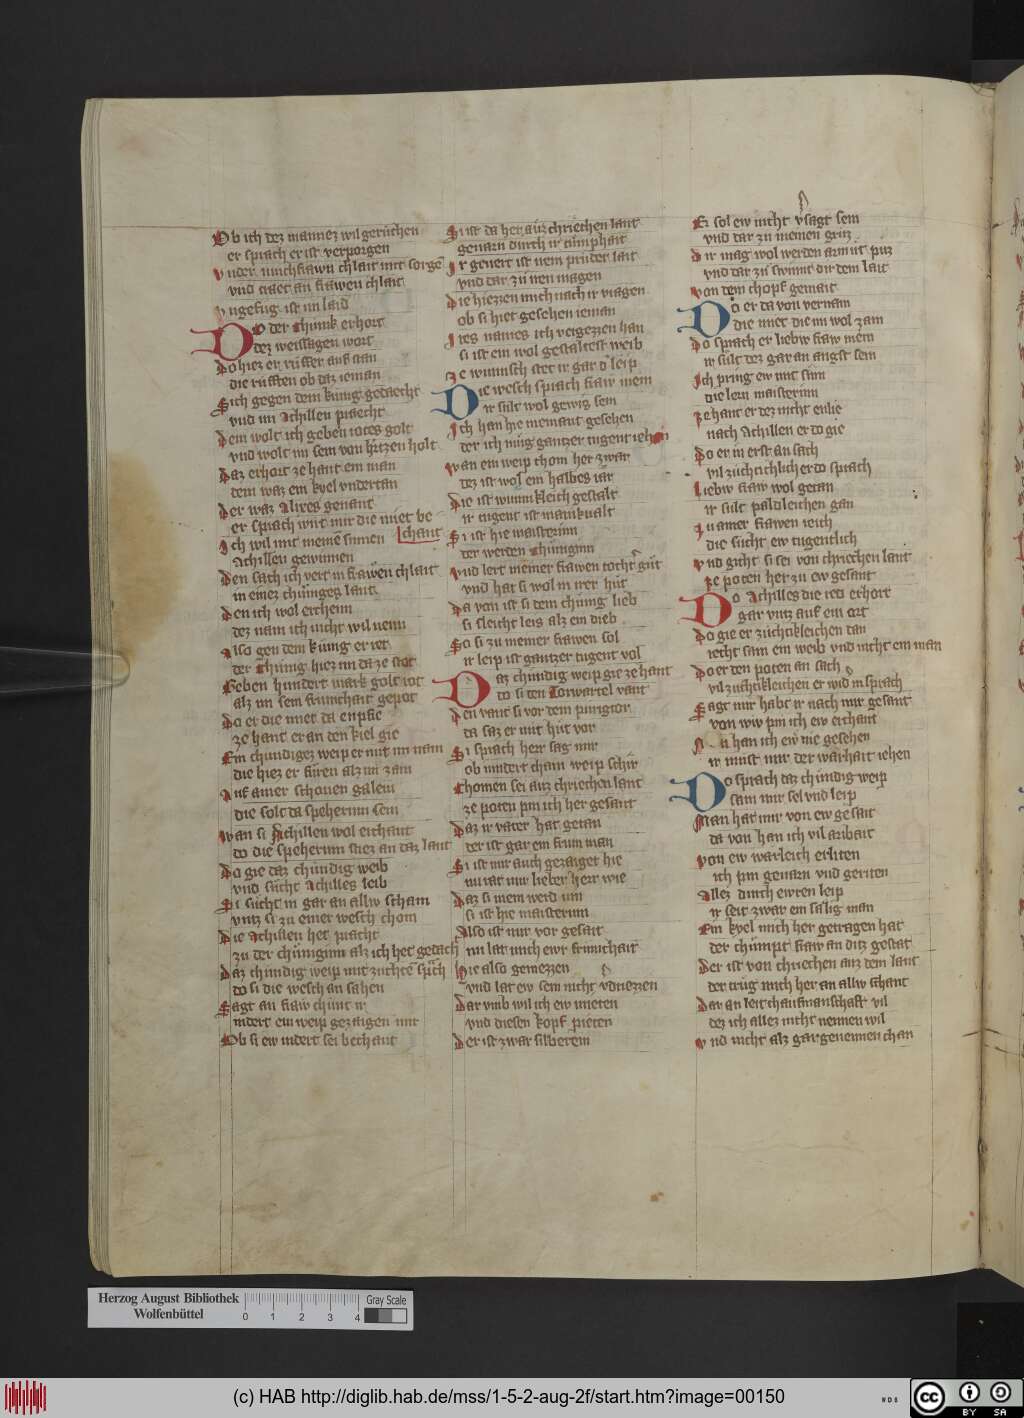 Ob ich dez mannez wil geruchen
er sprach er ist verporgen
vnder iunchfrawn chlait mit sorgen
vnd traet an frawen chlait
vngefug ist im laid
Do der Chunk erhort
dez weissagen wort
Do hiez er ruffer auf stan
die rufften ob daz ieman
Sich gegen dem kunig gedaecht
vnd im Achillen praecht
Dem wolt ich geben rotes golt
vnd wolt im sein von hertzen holt
Daz erhort ze hant ein man
dem waz ein kyel vndertan
Der waz Alixes genant
er sprach wirt mir die miet be
chant
Ich wil mit meinen sinnen
Achillen gewinnen
Den sach ich vert in frawen chlait
in einez chuniges lant
Den ich wol erchenn
dez nam ich nicht wil nenn
Also gen dem kunig er iet
der Chunig hiez im da ze stet
Geben hundert mark golt rot
alz im sein frumchait gepot
Do er die miet da enpfie
ze hant er an den kiel gie
Ein chundigez weip er mit im nam
die hiez er furen alz im zam
Auf ainer schonen galein
die solt da speherinn sein
Wan si Achillen wol erchant
do die speherinn stiez an daz lant
Do gie daz chundig weib
vnd sucht Achilles leib
Si sucht in gar an alliw scham
vntz si zu einer wesch chom
Die Achillen het pracht
zu der chuniginn alz ich het gedacht
Daz chundig weip mit zuchten sprach
do si die wesch an sahen
Sagt an fraw chunt ir
indert ein weip gezaigen mir
Ob si ew indert sei bechant
Si ist da her auz chriechen lant
genarn durch ir tumphait
Ir geuert ist irem pruder lait
vnd dar zu iren magen
Die hiezzen mich nach ir vragen
ob si hiet gesehen ieman
Ires names ich vergezzen han
si ist ein wol gestaltest weib
Ze wunsch stet ir gar der leip
Die wesch sprach fraw mein
ir sult wol gewis sein
Ich han hie niemant gesehen
der ich mug gantzer tugent iehen
Wan ein weip chom her zwar
dez ist wol ein halbes iar
Die ist wunnkleich gestalt
ir tugent ist manikualt
Si ist hie maisterinn
der werden Chuniginn
Vnd lert meiner frawen tochter gut
vnd hat si wol in irer hut
Da von ist si dem chunig lieb
si sleicht leis alz ein dieb
So si zu meiner frawen sol
ir leip ist gantzer tugent vol
Daz chundig weip gie ze hant
do si den Torwartel vant
Den vant si vor dem purigtor
da saz er mit hut vor
Si sprach herr sag mir
ob indert cham weip schir
Chomen sei auz chriechen lant
ze poten pin ich her gesant
Daz ir vater hat getan
der ist gar ein frum man
Si ist mir auch gezaiget hie
nu rat mir lieber herr wie
Daz si mein werd inn
si ist hie maisterinn
Also ist mir vor gesait
nu lat mich ewr frumchait
Hie also geniezzen
vnd lat ew sein nicht verdriezzen
Dar vmb wil ich ew mieten
vnd diesen kopf pieten
Der ist zwar silberein
Er sol ew nicht versagt sein
vnd dar zu meinen gruz
Dir mag wol werden armut puz
vnd dar zu swint dir dein lait
Von dem chopf gemait
Do er da von vernam
die miet die im wol zam
Do sprach er liebiw fraw mein
ir sult dez gar an angst sein
Ich pring ew mit sim
die lein maisterinn
Ze hant er dez nicht enlie
nach Achillen er do gie
Do er in erst an sach
vil zuchtichlich er do sprach
Liebiw fraw wol getan
ir sult paldleichen gan
Zu ainer frawen reich
die sucht ew tugentlich
Vnd gicht si sei von chriechen lant
ze poten her zu ew gesant
Do Achilles die red erhort
gar vntz auf ein ort
Do gie er zuchtikleichen dan
recht sam ein weib vnd nicht ein man
Do er den poten an sach
vil zuchtikleichen er wider in sprach
Sagt mir habt ir nach mir gesant
von wiw pin ich ew erchant
Nu han ich ew nie gesehen
ir must mir der warhait iehen
Do sprach daz chundig weip
sam mir sel vnd leip
Man hat mir von ew gesait
da von han ich vil aribait
Von ew warleich erliten
ich pin geuarn vnd geriten
Allez durch ewren leip
ir seit zwar ein salig man
Ein kyel mich her getragen hat
der chumpt fraw an ditz gestat
Der ist von chriechen auz dem lant
der trug mich her an alliw schant
Dar an leit chaufmanschaft vil
dez ich allez nicht nennen wil
Vnd nicht alz gar genennen chan
Herzog August Bibliothek
Wolfenbüttel
0 1 2 3 4
Gray Scale
(c) HAB http://diglib.hab.de/mss/1-5-2-aug-2f/start.htm?image=00150
WDB
cc BY SA